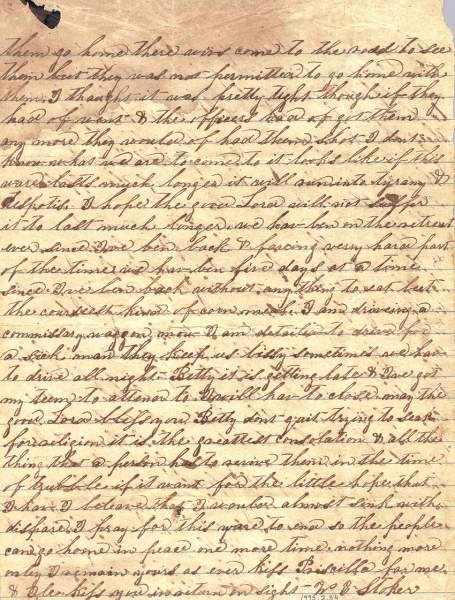 them go home there wives come to the road to see
them but they was not permitted to go home with
them I thought it was pretty tight though if they
had of went & the officers had of got them
any more they would of had them shot I dont
know what we are to come to it looks like if this
ware lasts much longer it will run into tyrany &
despotis I hope the good Lord will not suffer
it to last much longer we hav ben on the retreat
ever since I ve ben back & farcing very hard part
of the time we hav ben five days at a time
since I ve ben back without any thing to eat but
the coursest kind of corn meal I am driveing a
commissary wagon now I am detaild to drive for
a sick man they keep us bissy sometimes we hav
to drive all night Betty it is getting late & I ve got
my teem to attend to I will hav to close may the
good Lord bless you Betty dont quit trying to seek
for religion it is the greattest consolation & all the
thing that a person has to revive them in the time
of trubble if it want for the little hope that
I hav I beleave that I would almost sink with
dispare I pray for this ware to end so the people
can go home in peace one more time nothing more
only I remain yours as ever kiss Priscilla for me
& I le kiss you in return on sight Stoker
1995.2.34